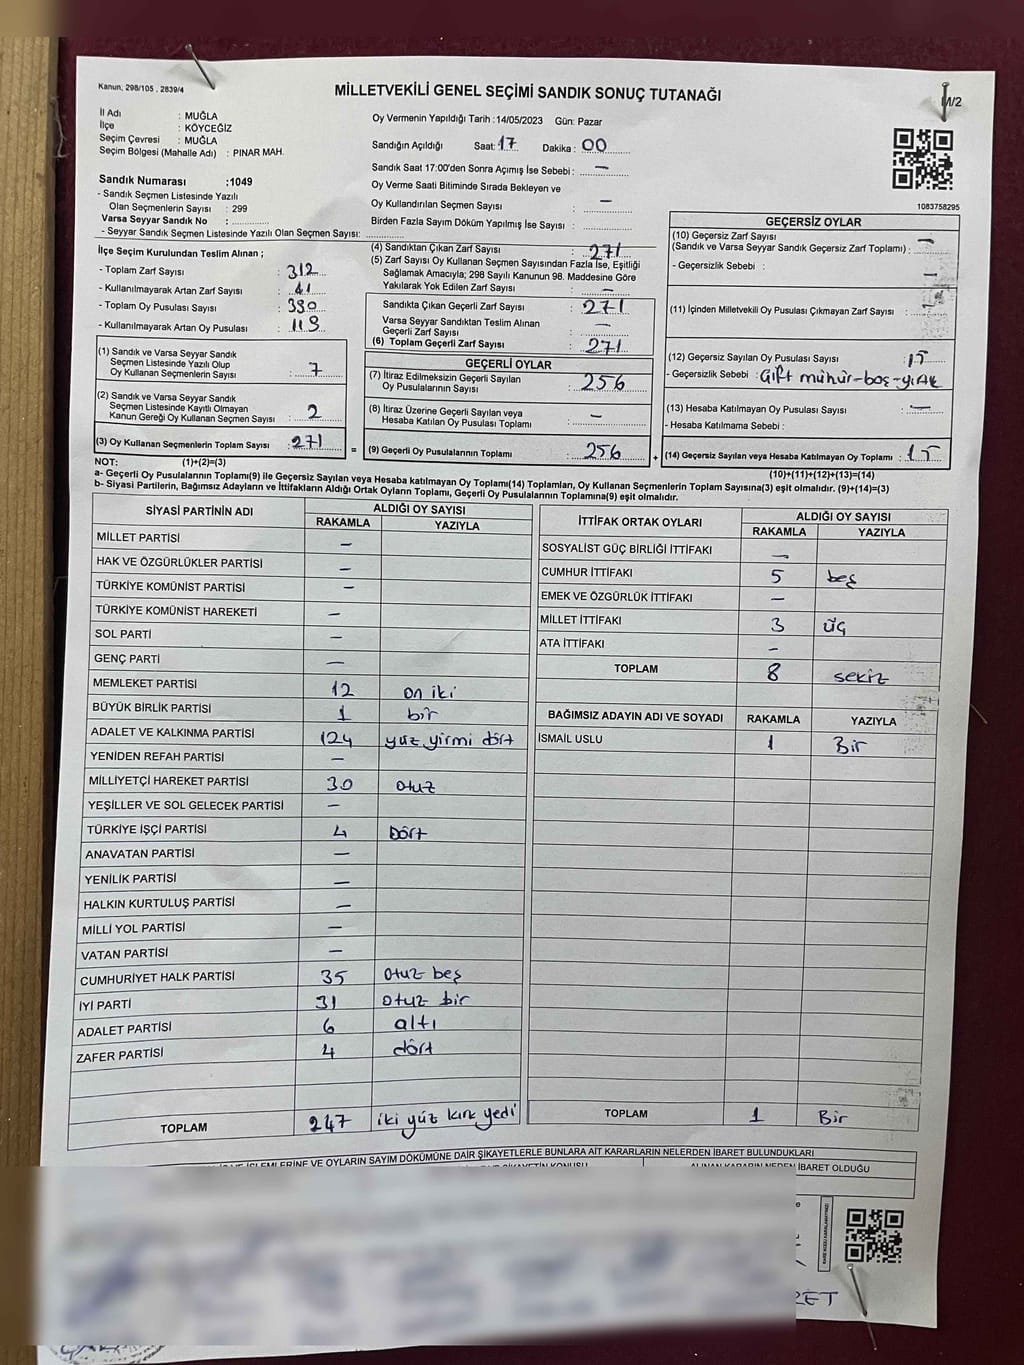 Kanun, 298/105 , 2839/4
MİLLETVEKİLİ GENEL SEÇİMİ SANDIK SONUÇ TUTANAĞI
M/2
İl Adı : MUĞLA
İlçe : KÖYCEĞİZ
Seçim Çevresi : MUĞLA
Seçim Bölgesi (Mahalle Adı) : PINAR MAH.
Sandık Numarası :1049
- Sandık Seçmen Listesinde Yazılı
Olan Seçmenlerin Sayısı : 299
Varsa Seyyar Sandık No :
- Seyyar Sandık Seçmen Listesinde Yazılı Olan Seçmen Sayısı:
Oy Vermenin Yapıldığı Tarih :14/05/2023 Gün: Pazar
Sandığın Açıldığı Saat: 17 Dakika : 00
Sandık Saat 17:00'den Sonra Açımış İse Sebebi : —
Oy Verme Saati Bitiminde Sırada Bekleyen ve
Oy Kullandırılan Seçmen Sayısı : —
Birden Fazla Sayım Döküm Yapılmış İse Sayısı :
1083758295
İlçe Seçim Kurulundan Teslim Alınan ;
- Toplam Zarf Sayısı : 312
- Kullanılmayarak Artan Zarf Sayısı : 41
- Toplam Oy Pusulası Sayısı : 390
- Kullanılmayarak Artan Oy Pusulası : 119
(1) Sandık ve Varsa Seyyar Sandık
Seçmen Listesinde Yazılı Olup
Oy Kullanan Seçmenlerin Sayısı : 7
(2) Sandık ve Varsa Seyyar Sandık
Seçmen Listesinde Kayıtlı Olmayan
Kanun Gereği Oy Kullanan Seçmen Sayısı : 2
(3) Oy Kullanan Seçmenlerin Toplam Sayısı : 271
(4) Sandıktan Çıkan Zarf Sayısı : 271
(5) Zarf Sayısı Oy Kullanan Seçmen Sayısından Fazla İse, Eşitliği
Sağlamak Amacıyla; 298 Sayılı Kanunun 98. Maddesine Göre
Yakılarak Yok Edilen Zarf Sayısı : —
Sandıkta Çıkan Geçerli Zarf Sayısı : 271
Varsa Seyyar Sandıktan Teslim Alınan
Geçerli Zarf Sayısı : —
(6) Toplam Geçerli Zarf Sayısı : 271
GEÇERLİ OYLAR
(7) İtiraz Edilmeksizin Geçerli Sayılan
Oy Pusulalarının Sayısı : 256
(8) İtiraz Üzerine Geçerli Sayılan veya
Hesaba Katılan Oy Pusulası Toplamı : —
= (9) Geçerli Oy Pusulalarının Toplamı : 256 +
GEÇERSİZ OYLAR
(10) Geçersiz Zarf Sayısı
(Sandık ve Varsa Seyyar Sandık Geçersiz Zarf Toplamı) : —
- Geçersizlik Sebebi : —
(11) İçinden Milletvekili Oy Pusulası Çıkmayan Zarf Sayısı :
(12) Geçersiz Sayılan Oy Pusulası Sayısı : 15
- Geçersizlik Sebebi : Çift mühür-boş-yırtık
(13) Hesaba Katılmayan Oy Pusulası Sayısı : —
- Hesaba Katılmama Sebebi :
(14) Geçersiz Sayılan veya Hesaba Katılmayan Oy Toplamı : 15
NOT: (1)+(2)=(3)
(10)+(11)+(12)+(13)=(14)
a- Geçerli Oy Pusulalarının Toplamı(9) ile Geçersiz Sayılan veya Hesaba katılmayan Oy Toplamı(14) Toplamları, Oy Kullanan Seçmenlerin Toplam Sayısına(3) eşit olmalıdır. (9)+(14)=(3)
b- Siyasi Partilerin, Bağımsız Adayların ve İttifakların Aldığı Ortak Oyların Toplamı, Geçerli Oy Pusulalarının Toplamına(9) eşit olmalıdır.
SİYASİ PARTİNİN ADI
ALDIĞI OY SAYISI
RAKAMLA YAZIYLA
MİLLET PARTİSİ —
HAK VE ÖZGÜRLÜKLER PARTİSİ —
TÜRKİYE KOMÜNİST PARTİSİ —
TÜRKİYE KOMÜNİST HAREKETİ —
SOL PARTİ —
GENÇ PARTİ —
MEMLEKET PARTİSİ 12 on iki
BÜYÜK BİRLİK PARTİSİ 1 bir
ADALET VE KALKINMA PARTİSİ 124 yüz yirmi dört
YENİDEN REFAH PARTİSİ —
MİLLİYETÇİ HAREKET PARTİSİ 30 otuz
YEŞİLLER VE SOL GELECEK PARTİSİ —
TÜRKİYE İŞÇİ PARTİSİ 4 Dört
ANAVATAN PARTİSİ —
YENİLİK PARTİSİ —
HALKIN KURTULUŞ PARTİSİ —
MİLLİ YOL PARTİSİ —
VATAN PARTİSİ —
CUMHURİYET HALK PARTİSİ 35 otuz beş
İYİ PARTİ 31 otuz bir
ADALET PARTİSİ 6 altı
ZAFER PARTİSİ 4 dört
TOPLAM 247 iki yüz kırk yedi
İTTİFAK ORTAK OYLARI
ALDIĞI OY SAYISI
RAKAMLA YAZIYLA
SOSYALİST GÜÇ BİRLİĞİ İTTİFAKI —
CUMHUR İTTİFAKI 5 beş
EMEK VE ÖZGÜRLÜK İTTİFAKI —
MİLLET İTTİFAKI 3 üç
ATA İTTİFAKI —
TOPLAM 8 sekiz
BAĞIMSIZ ADAYIN ADI VE SOYADI RAKAMLA YAZIYLA
İSMAİL USLU 1 Bir
TOPLAM 1 Bir
İŞLEMLERİNE VE OYLARIN SAYIM DÖKÜMÜNE DAİR ŞİKAYETLERLE BUNLARA AİT KARARLARIN NELERDEN İBARET BULUNDUKLARI
ALINAN KARARIN NEDEN İBARET OLDUĞU